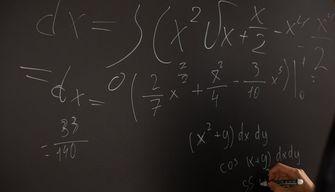 dx = ∫ (x² √x + x/2 - x⁴ x/2
= dx = 0 (2/7 x^(7/2) + x²/4 - 3/10 x⁵) |₀¹
= 33/140
(x² + y) dx dy
cos (x + y) dx dy